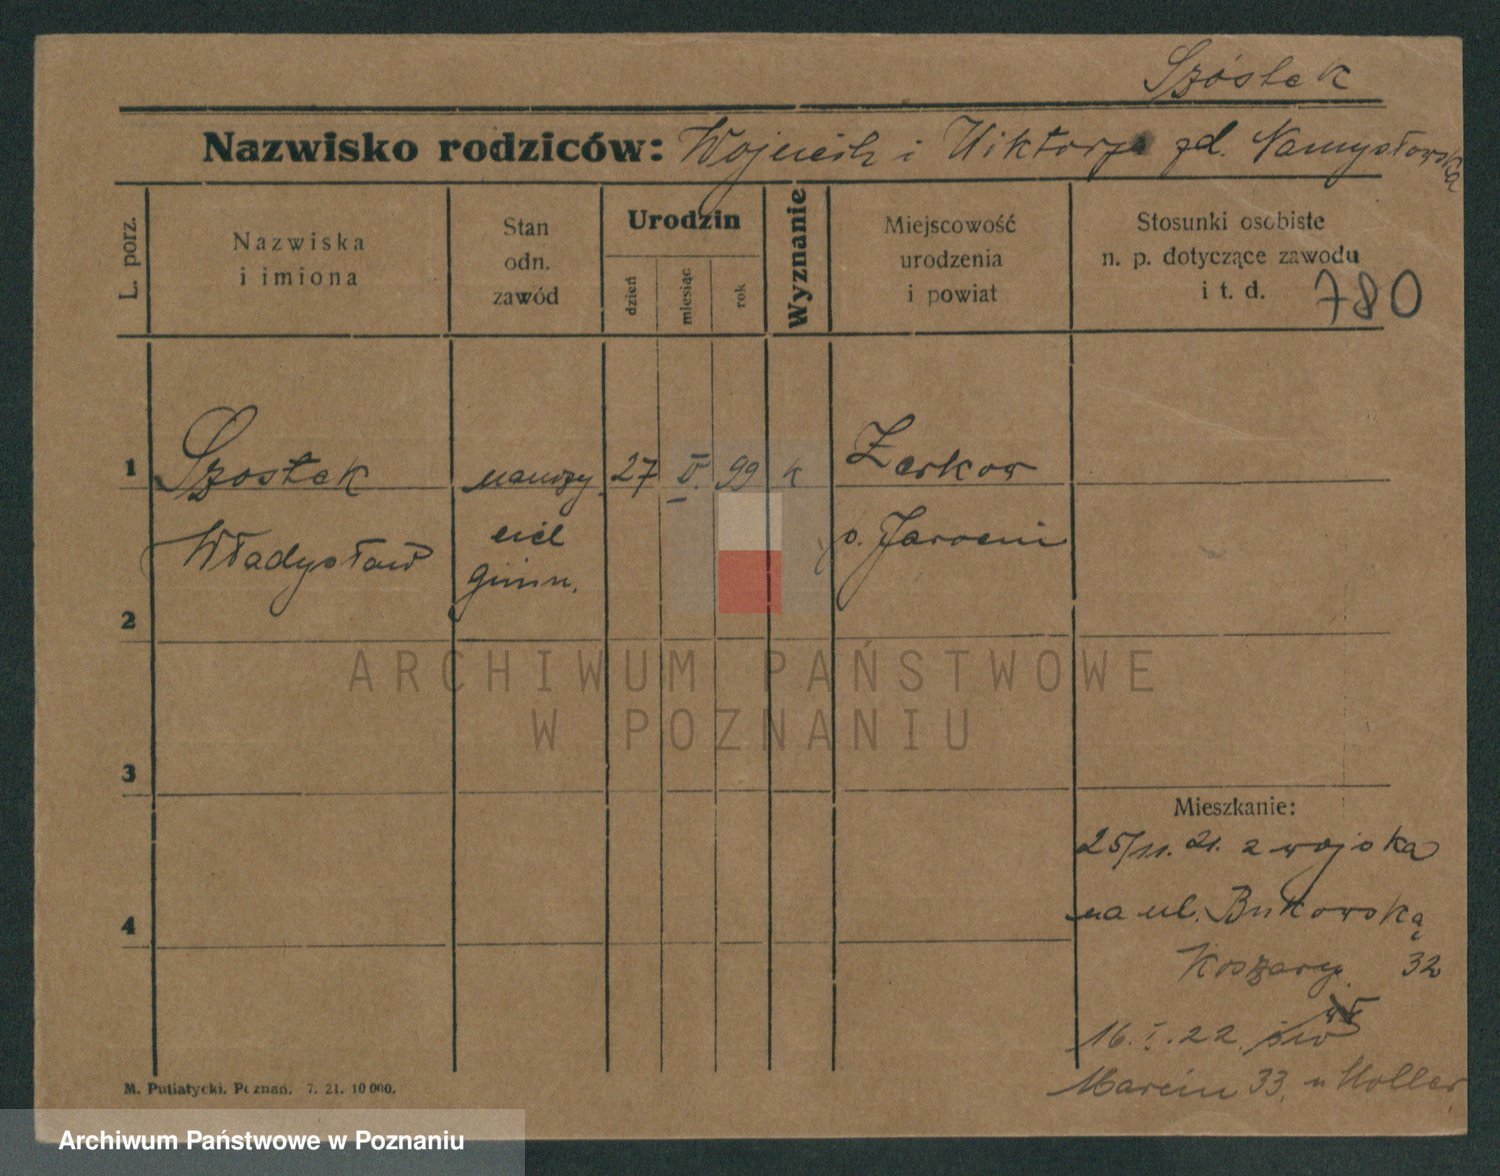 Szóstek
Nazwisko rodziców: Wojciech i Wiktorja zd. Namysłowska
L. porz.
Nazwiska
i imiona
Stan
odn.
zawód
Urodzin
dzień
miesiąc
rok
Wyznanie
Miejscowość
urodzenia
i powiat
Stosunki osobiste
n. p. dotyczące zawodu
i t. d.
780
1 Szostek nauczy 27 99 k Żerkow
Władysław ciel p. Jarocin
gimn.
2
3
4
Mieszkanie:
25/11. 21. z wojska
na ul. Bukowską
Koszary 32
16. I. 22. św
Marcin 33. u Moller
M. Putiatycki, Poznań. 7. 21. 10 000.
ARCHIWUM PAŃSTWOWE
W POZNANIU
Archiwum Państwowe w Poznaniu